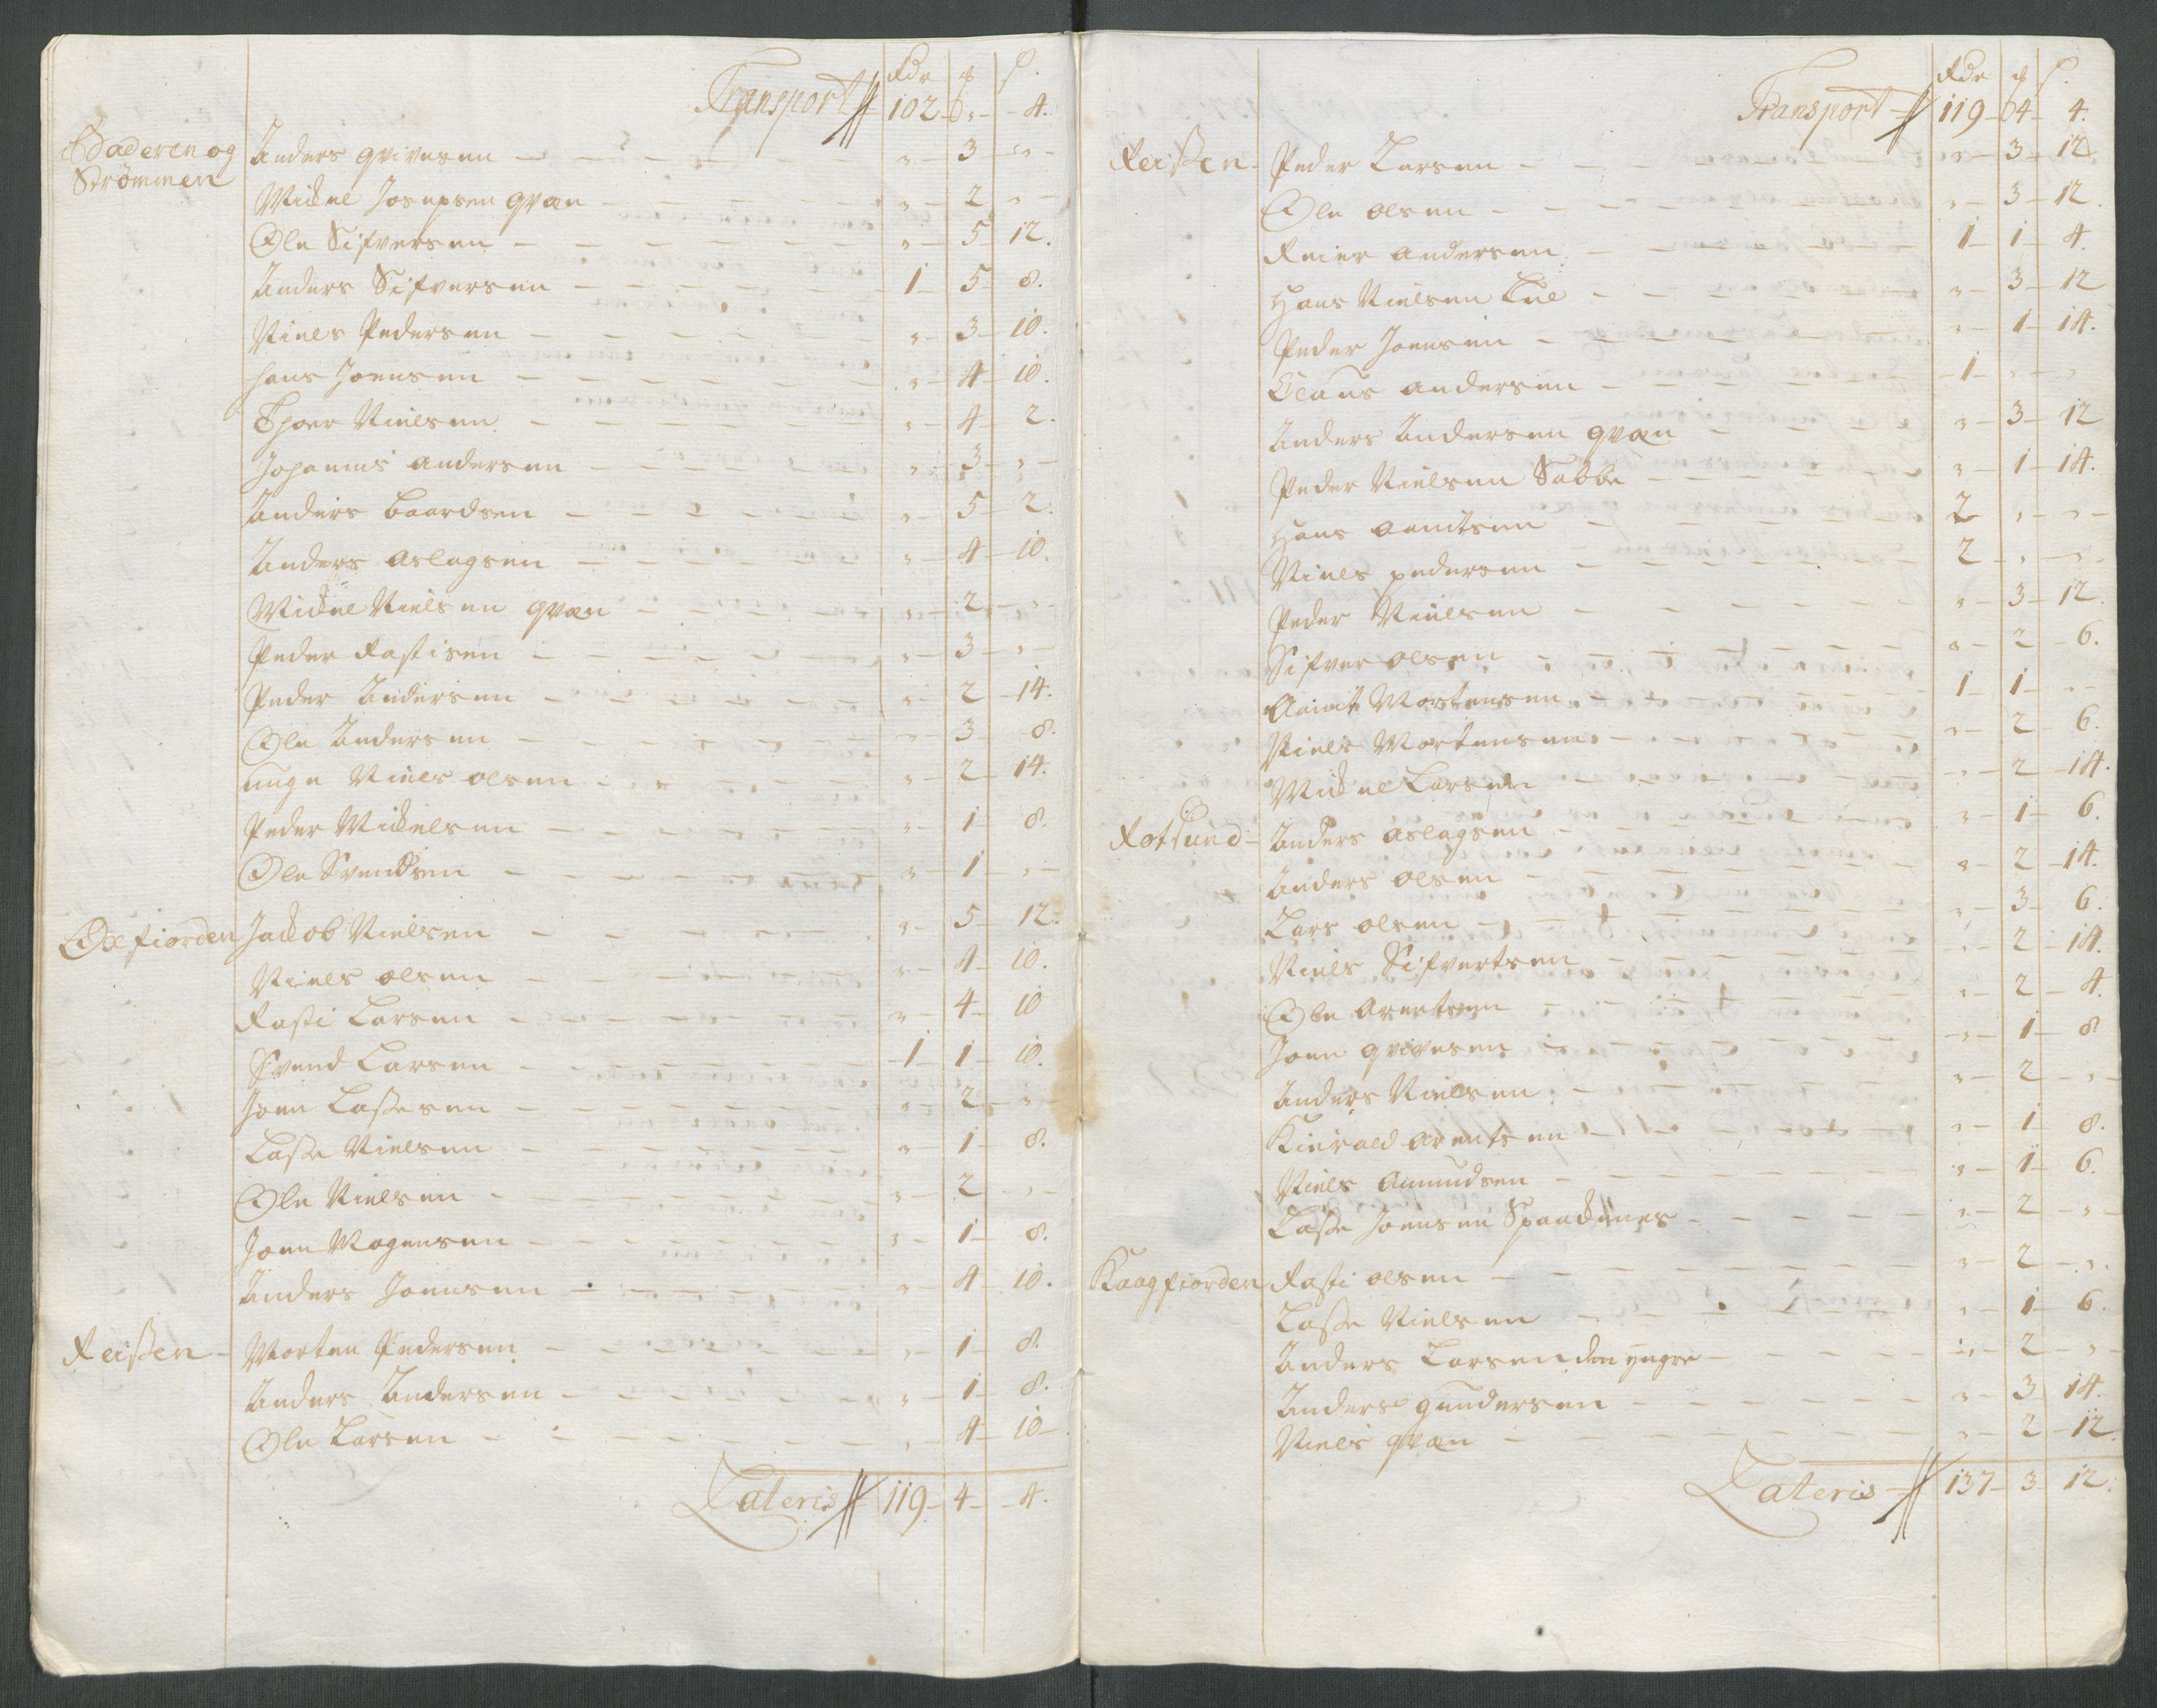 Rdr ₰ s.
Transport 102 0 „ 4.
Badderen og Anders qvivesen — „ 3 „
Strømmen
Mickel Josepsen qvæn — „ 2 „
Ole Sifversen — „ 5 12.
Anders Sifversen — 1 5 8.
Niels Pedersen — „ 3 10.
Hans Joensen — „ 4 10.
Thoer Nielsen — „ 4 2.
Johannis Andersen — „ 3 „
Anders Baardsen — „ 5 2.
Anders Aslagsen — „ 4 10.
Mickel Nielsen qvæn — „ 2 „
Peder Rastisen — „ 3 „
Peder Andersen — „ 2 14.
Ole Andersen — „ 3 8.
unge Niels olsen — „ 2 14.
Peder Mickelsen — „ 1 8.
Ole Svendsen — „ 1 „
Oxfiorden Jackob Nielsen — „ 5 12.
Niels olsen — „ 4 10.
Rasti Larsen — „ 4 10
Svend Larsen — 1 1 10.
Joen Lassesen — „ 2 „
Lasse Nielsen — „ 1 8.
Ole Nielsen — „ 2 „
Joen Mogensen — „ 1 8.
Anders Joensen — „ 4 10.
Reissen — Morten Pedersen — „ 1 8.
Anders Andersen — „ 1 8.
Ole Larsen — „ 4 10
Lateris 119 4 4.
Rdr ₰ s.
Transport 119 04 4.
Reissen — Peder Larsen — „ 3 12
Ole olsen — „ 3 12.
Reier Andersen — 1 1 4.
Hans Nielsen Lul — „ 3 12
Peder Joensen — „ 1 14.
Claus Andersen — 1 „ „
Anders Andersen qvæn — „ 3 12
Peder Nielsen Sabbe — „ 1 14.
Hans Aamtsen — 2 „ „
Niels pedersen — 2 „ „
Peder Nielsen — „ 3 12.
Sifver olsen — „ 2 6.
Mortensen — 1 1 „
Niels Mortensen — „ 2 6.
Mickel Larsen — „ 2 14.
Rotsund — Anders Aslagsen — „ 1 6.
Anders olsen — „ 2 14.
Lars olsen — „ 3 6.
Niels Sifvertsen — „ 2 14.
Ole Arentsen — „ 2 4.
Joen qvivesen — „ 1 8
Anders Nielsen — „ 2 „
Kinrald Arentsen — „ 1 8.
Niels Amundsen — „ 1 6.
Lasse Joensen Spaackenes — „ 2 „
Kaagfiorden Rasti olsen — „ 2 „
Lasse Nielsen — „ 1 6.
Anders Larsen den yngre — „ 2 „
Anders gundersen — „ 3 14.
Niels qvæn — „ 2 12.
Lateris 137 3 12.